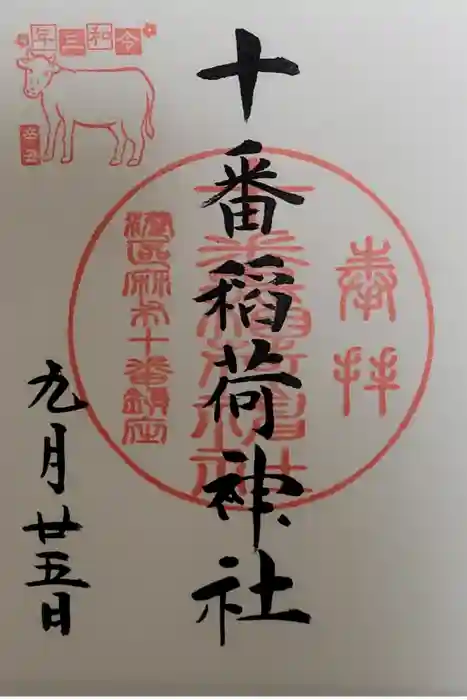 令和三年
辛丑
奉拝
十番稲荷神社
港区麻布十番鎮座
九月廿五日